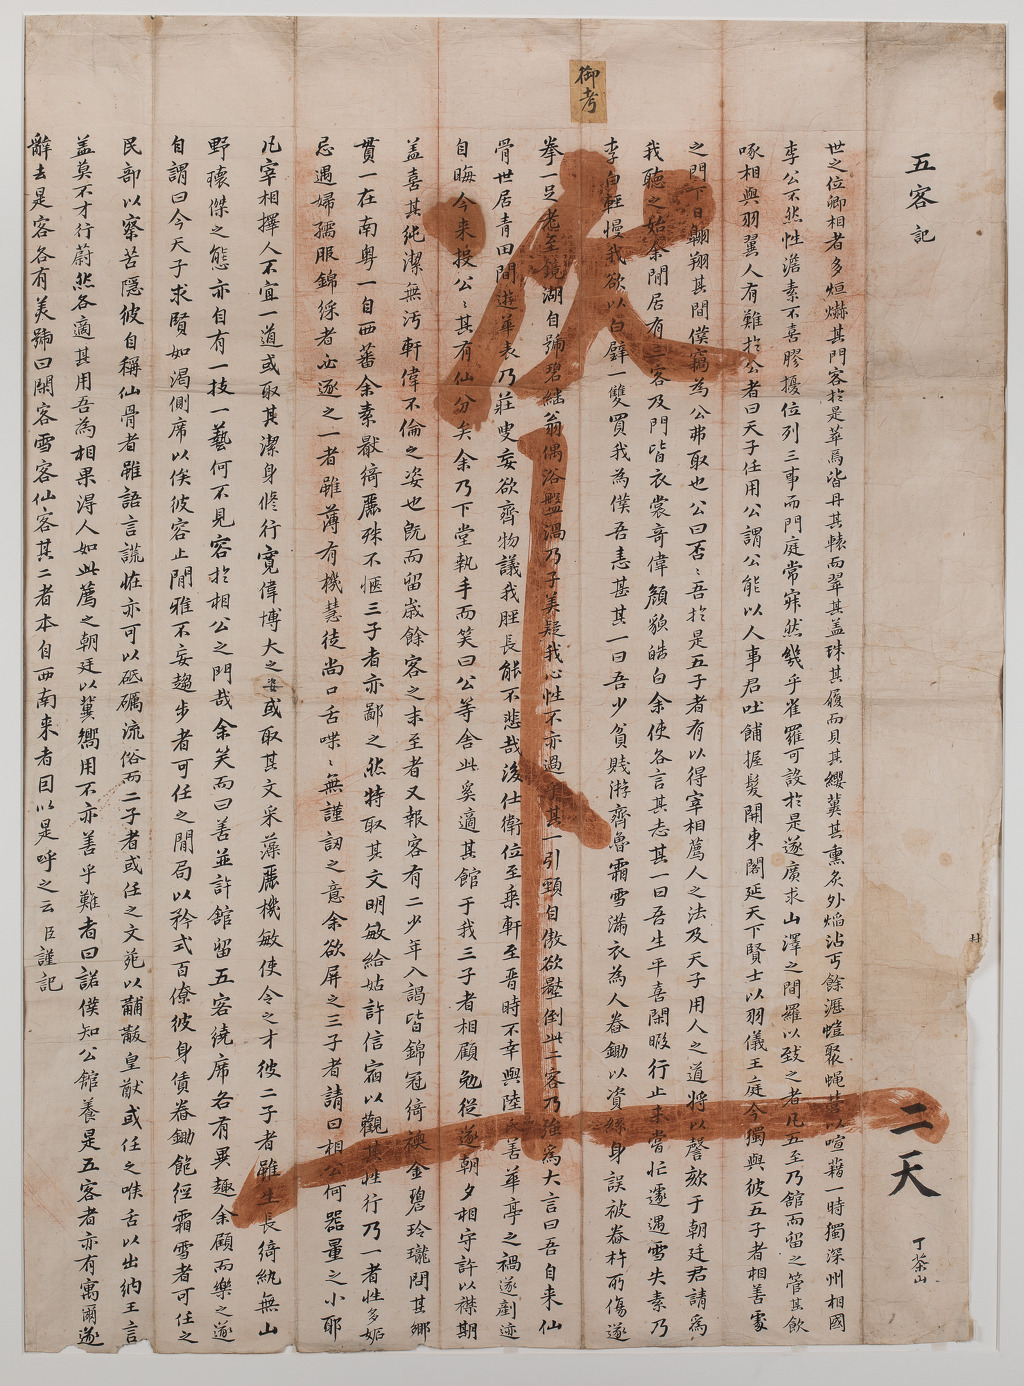 五客記
二天
丁茶山
御考
次上
世之位卿相者多烜爀其門客於是華焉皆丹其轅而翠其盖珠其履而貝其纓冀其熏炙外焰沾丐餘瀝螘聚蝇營以喧藉一時獨深州相國
李公不然性澹素不喜膠擾位列三事而門庭常寂然幾乎雀羅可設於是遂廣求山澤之間羅以致之者凡五至乃館而留之管其飮
啄相與羽翼人有難於公者曰天子任用公謂公能以人事君吐餔握髮開東閣延天下賢士以羽儀王庭今獨與彼五子者相善處
之門下日翺翔其間僕竊為公弗取也公曰否〻吾於是五子者有以得宰相薦人之法及天子用人之道將以謦欬于朝廷君請爲
我聽之始余閒居有三客及門皆衣裳奇偉顔貌皓白余使各言其志其一曰吾生平喜閑暇行止未嘗忙遽遇雪失素乃
李白輕慢我欲以白璧一雙買我為僕吾恚甚其一曰吾少貧賤游齊魯霜雪滿衣為人眷鋤以資絲身誤被眷杵所傷遂
拳一足老至鏡湖自號碧繼翁偶浴盤渦乃子美疑我心性不亦過乎其一引頸自傲欲壓倒此二客乃強爲大言曰吾自来仙
骨世居青田間遊華表乃莊叟妄欲齊物議我脛長能不悲哉後仕衛位至乗軒至晋時不幸與陸氏善華亭之禍遂剷迹
自晦今来投公〻其有仙分矣余乃下堂執手而笑曰公等舍此奚適其館于我三子者相顧勉從遂朝夕相守許以襟期
盖喜其純潔無汚軒偉不倫之姿也旣而留歲餘客之未至者又報客有二少年入謁皆錦冠綺襖金碧玲瓏問其鄕
貫一在南粤一自西蕃余素猒綺麗殊不愜三子者亦鄙之然特取其文明敏給姑許信宿以觀其性行乃一者性多妬
忌遇婦孺服錦綵者必逐之一者雖薄有機慧徒尚口舌喋〻無謹訒之意余欲屏之三子者請曰相公何器量之小耶
凡宰相擇人不宜一道或取其潔身修行寬偉博大之姿或取其文采藻麗機敏使令之才彼二子者雖生長綺紈無山
野瓌傑之態亦自有一技一藝何不見容於相公之門哉余笑而曰善並許館留五客繞席各有異趣余顧而樂之遂
自謂曰今天子求賢如渴側席以俟彼容止閒雅不妄趨步者可任之閒局以矜式百僚彼身債眷鋤飽經霜雪者可任之
民部以察苦隱彼自稱仙骨者雖語言謊恠亦可以砥礪流俗而二子者或任之文苑以黼黻皇猷或任之喉舌以出納王言
盖莫不才行蔚然各適其用吾為相果得人如此薦之朝廷以冀嚮用不亦善乎難者曰諾僕知公舘養是五客者亦有寓爾遂
辭去是客各有美號曰閑客雪客仙客其二者本自西南来者因以是呼之云臣謹記